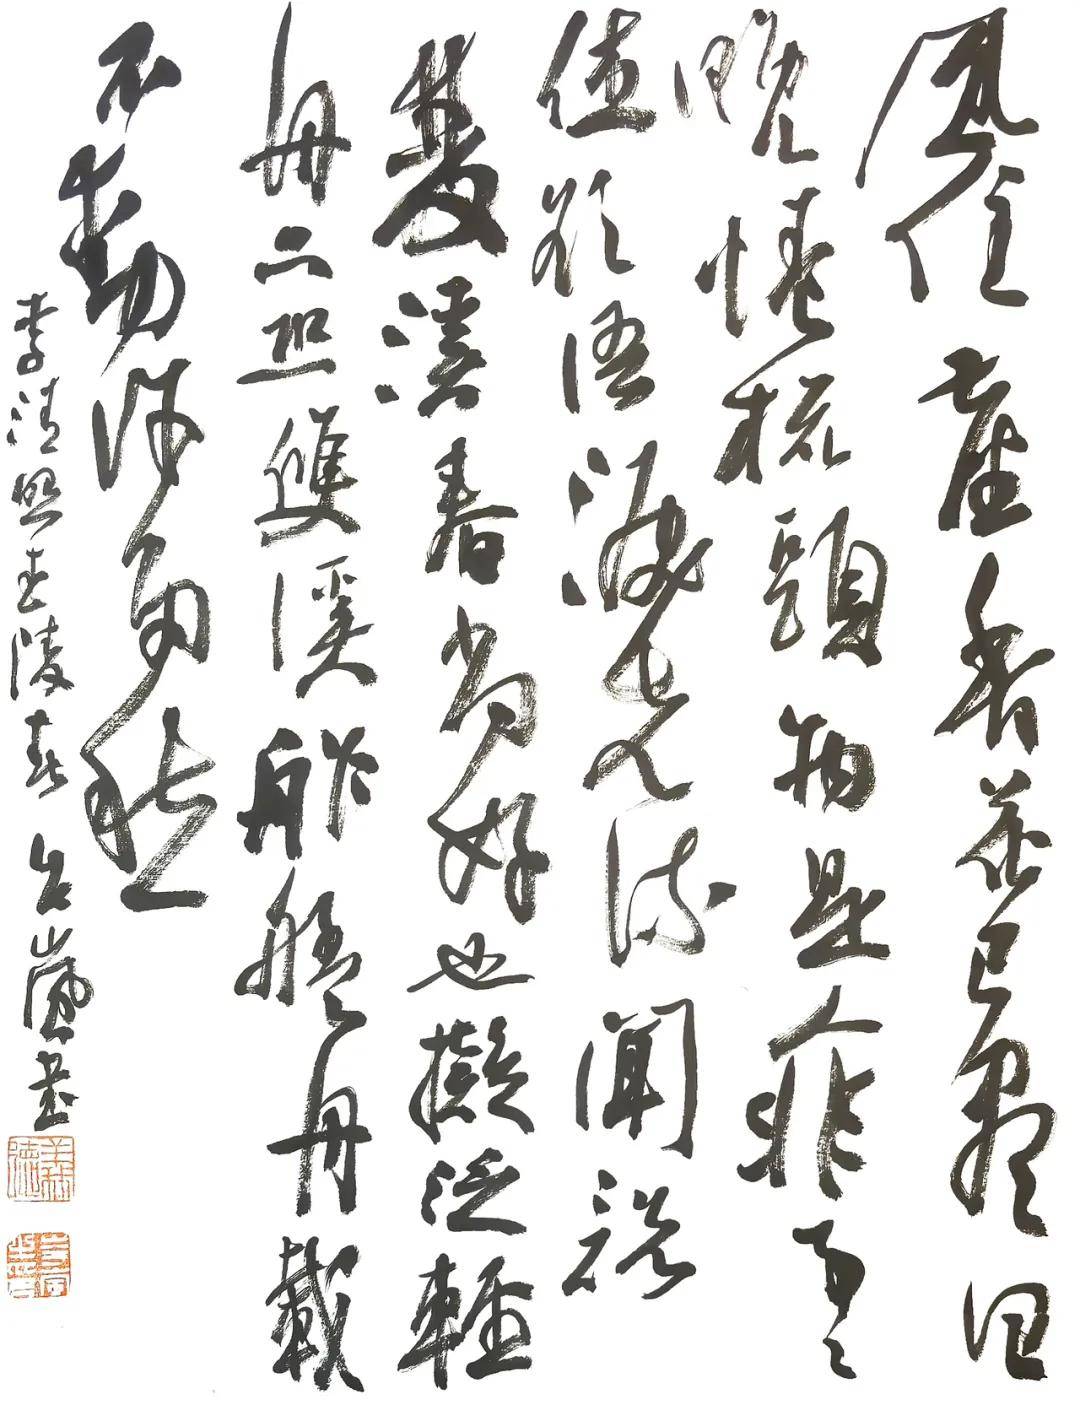 風住塵香花已盡日
晚倦梳頭物是人非事〻
休欲語淚先流聞説
雙溪春尚好也擬泛輕
舟只恐雙溪舴艋舟載
不動許多愁
李清照武陵春 嵐書